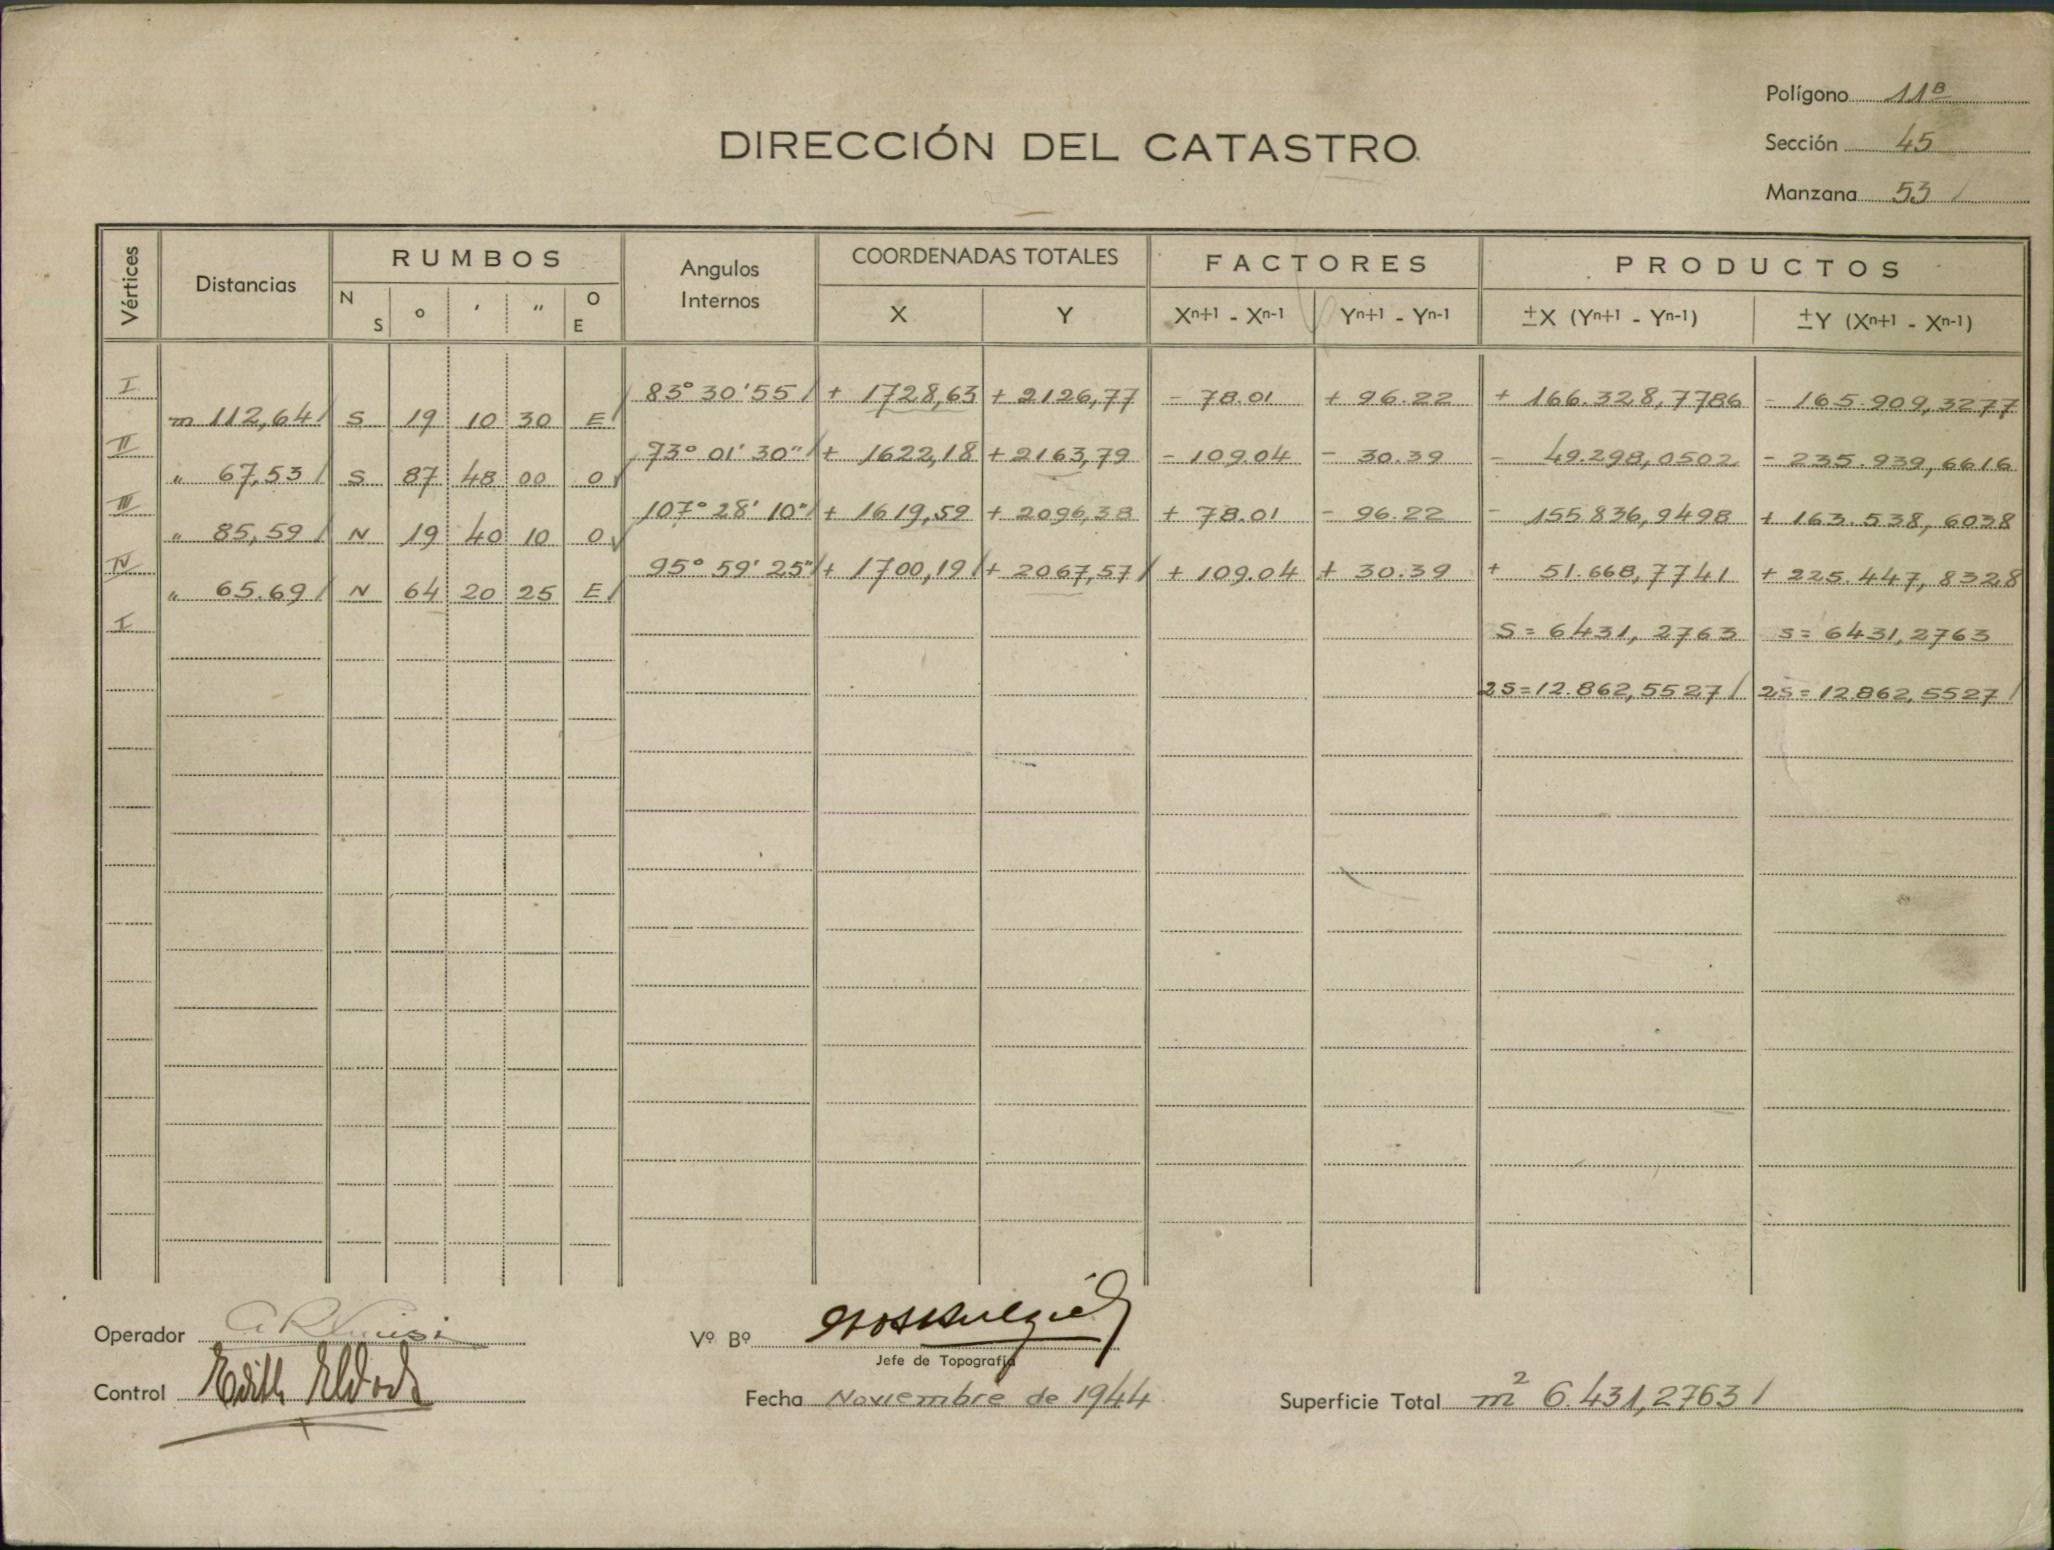 Polígono 11ᴮ
DIRECCIÓN DEL CATASTRO.
Sección 45
Manzana 53
Vértices Distancias RUMBOS Angulos Internos COORDENADAS TOTALES FACTORES PRODUCTOS
N S ° ' " O E X Y Xⁿ⁺¹ - Xⁿ⁻¹ Yⁿ⁺¹ - Yⁿ⁻¹ ±X (Yⁿ⁺¹ - Yⁿ⁻¹) ±Y (Xⁿ⁺¹ - Xⁿ⁻¹)
I 83° 30' 55 + 1728,63 + 2126,77 - 78.01 + 96.22 + 166.328,7786 - 165.909,3277
m 112,64 S 19 10 30 E
II 73° 01' 30" + 1622,18 + 2163,79 - 109.04 - 30.39 - 49.298,0502 - 235.939,6616
" 67,53 S 87 48 00 O
III 107° 28' 10" + 1619,59 + 2096,38 + 78.01 - 96.22 - 155.836,9498 + 163.538,6038
" 85,59 N 19 40 10 O
IV 95° 59' 25" + 1700,19 + 2067,57 + 109.04 + 30.39 + 51.668,7741 + 225.447,8328
" 65.69 N 64 20 25 E
I S = 6431,2763 S = 6431,2763
2S = 12.862,5527 2S = 12.862,5527
Operador
Vº Bº
Jefe de Topografía
Control Edith
Fecha Noviembre de 1944
Superficie Total m² 6.431,2763